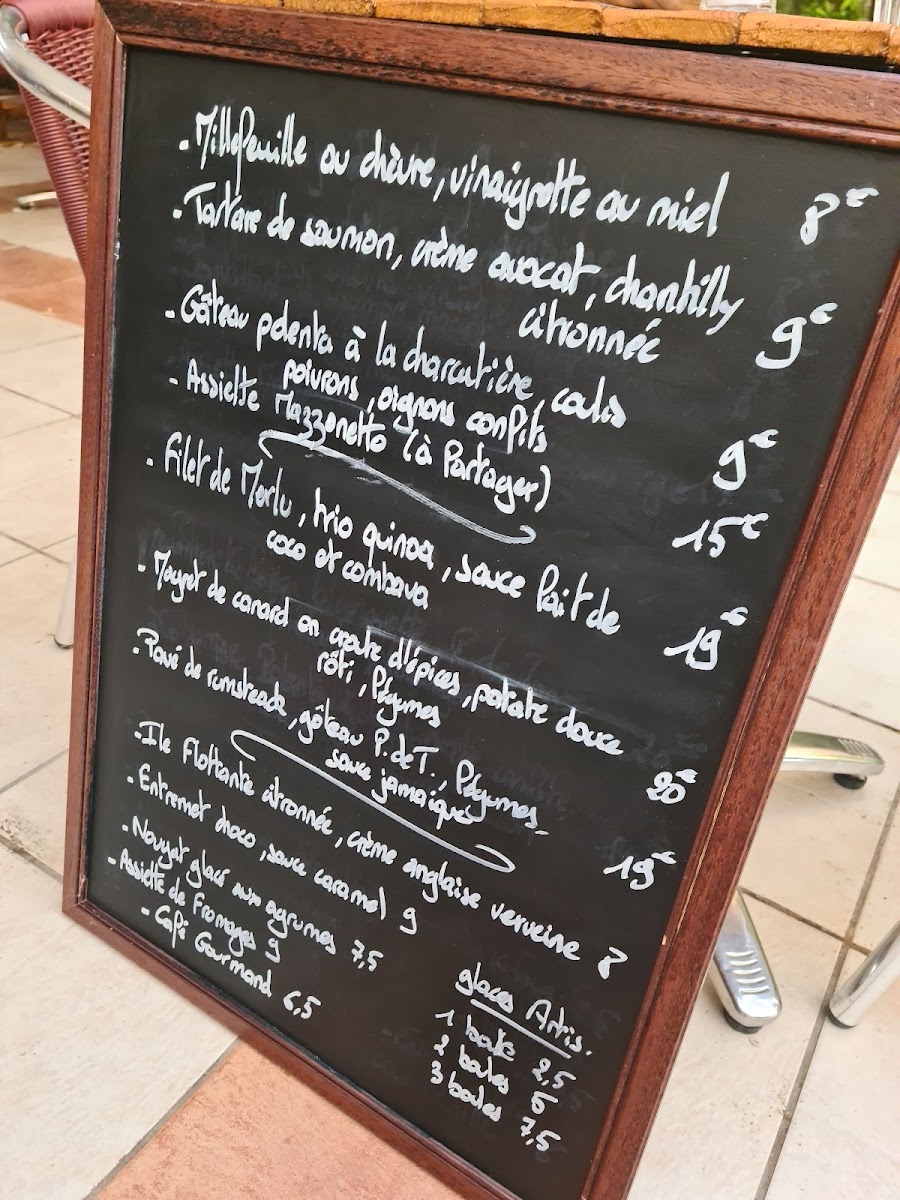 . Millefeuille au chèvre, vinaigrette au miel 8€
. Tartare de saumon, crème avocat, chantilly
citronnée 9€
. Gâteau polenta à la charcutière, coulis
poivrons, oignons confits 9€
. Assiette Mazzonetto (à Partager) 15€
. Filet de Merlu, trio quinoa, sauce lait de
coco et combava 19€
. Magret de canard en croute d'épices, patate douce
rôti, légumes 20€
. Pavé de rumsteack, gâteau P. de T., légumes,
sauce jamaique 19€
. Ile flottante citronnée, crème anglaise verveine 8
. Entremet choco, sauce caramel 9
. Nougat glacé aux agrumes 7,5
. Assiette de fromages 9
. Café Gourmand 6,5
glaces Artis.
1 boule 2,5
2 boules 5
3 boules 7,5